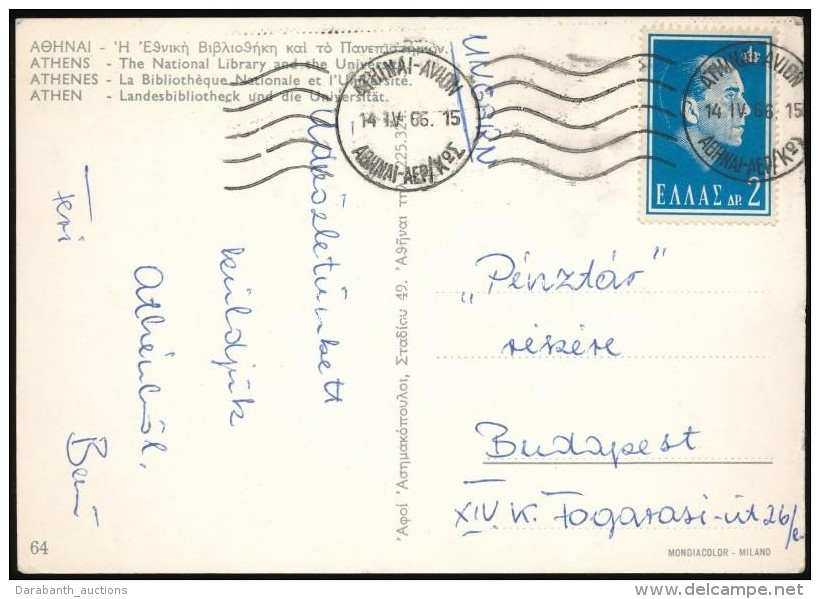 ΑΘΗΝΑΙ - Ἡ Ἐθνικὴ Βιβλιοθήκη καὶ τὸ Πανεπιστήμιον.
ATHENS - The National Library and the University.
ATHENES - La Bibliothèque Nationale et l'Université.
ATHEN - Landesbibliotheck und die Universität.
ΑΘΗΝΑΙ-AVION
14 IV 66. 15
ΑΘΗΝΑΙ-ΑΕΡ/ΚΩΣ
UNGARN
ΑΘΗΝΑΙ-AVION
14 IV 66. 15
ΑΘΗΝΑΙ-ΑΕΡ/ΚΩΣ
ΕΛΛΑΣ ΔΡ. 2
küldjük
Athénból.
Teri
„Pénztár"
részére
Budapest
XIV. K. Fogarasi-út 26/
Ἀφοί Ἀσημακόπουλοι, Σταδίου 49. Ἀθῆναι
64
MONDIACOLOR - MILANO
Darabanth_auctions
delcampe.net